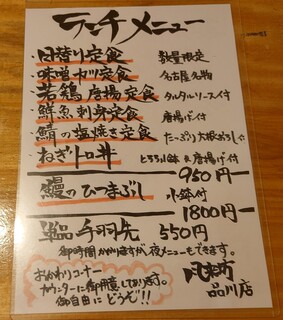 ランチメニュー
日替り定食 数量限定
味噌カツ定食 名古屋名物
若鶏唐揚定食 タルタルソース付
鮮魚刺身定食 唐揚げ付
鯖の塩焼き定食 たっぷり大根おろし付
ねぎトロ丼 とろろ小鉢&唐揚げ付
950円
鰻のひつまぶし 小鉢付
1800円
単品 手羽先 550円
御時間かかりますが、夜メニューもできます。
おかわりコーナー
カウンターに御用意しております。
御自由にどうぞ!!
品川店